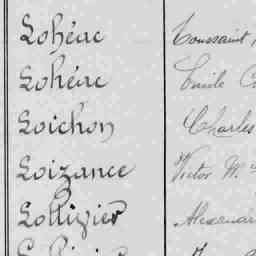 Lohéac Toussaint
Lohéac Emile
Loichon Charles
Loizance Victor M.
Lollivier